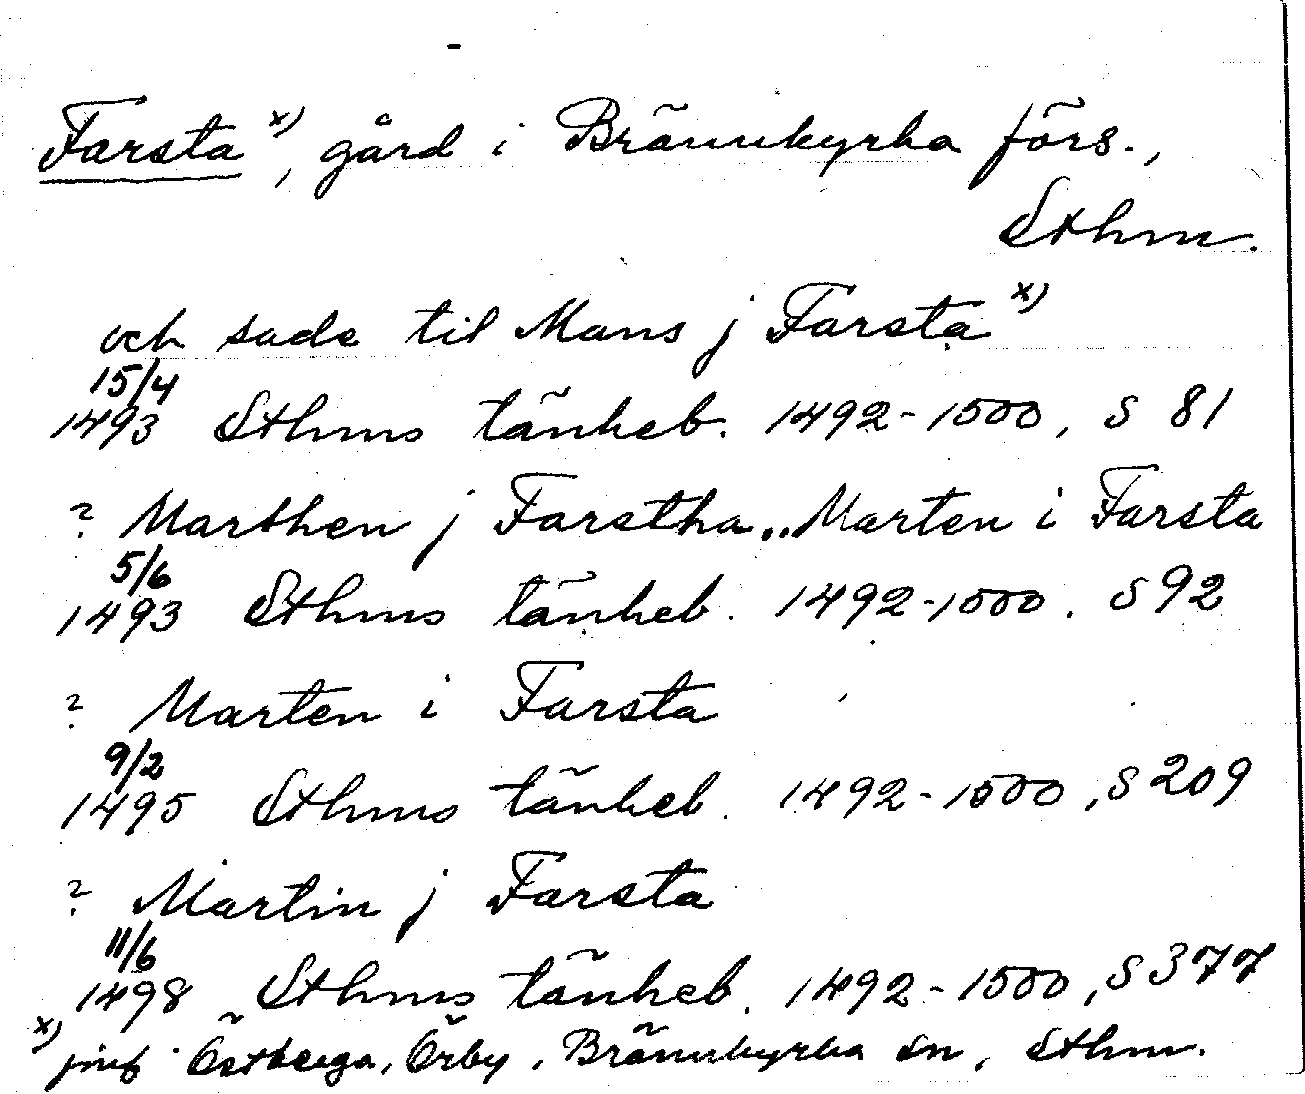 Farsta x), gård i Brännkyrka förs.,
Sthm.
och sade til Mans j Farsta x)
15/4
1493 Sthms tänkeb. 1492-1500, s 81
? Marthen j Farstha .. Marten i Farsta
5/6
1493 Sthms tänkeb. 1492-1500. s 92
? Marten i Farsta
9/2
1495 Sthms tänkeb. 1492-1500, s 209
? Martin j Farsta
11/6
1498 Sthms tänkeb. 1492-1500, s 377
x) jmf Östberga, Örby, Brännkyrka sn, Sthm.